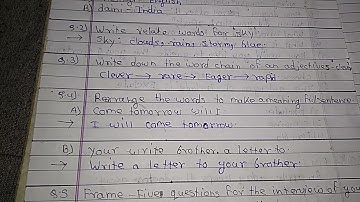 English
A) dain = India
Q.2) Write relate words for 'sky'.
→ sky: clouds, rain, stormy, blue.
Q.3) Write down the word chain of an adjectives
Clever → rare → Eager → rapid
Q.4) Rearrange the words to make a meaningful sentence.
A) Come tomorrow will I.
→ I will come tomorrow.
B) Your write brother a letter to.
→ Write a letter to your brother.
Q.5 Frame Five questions for the interview of your